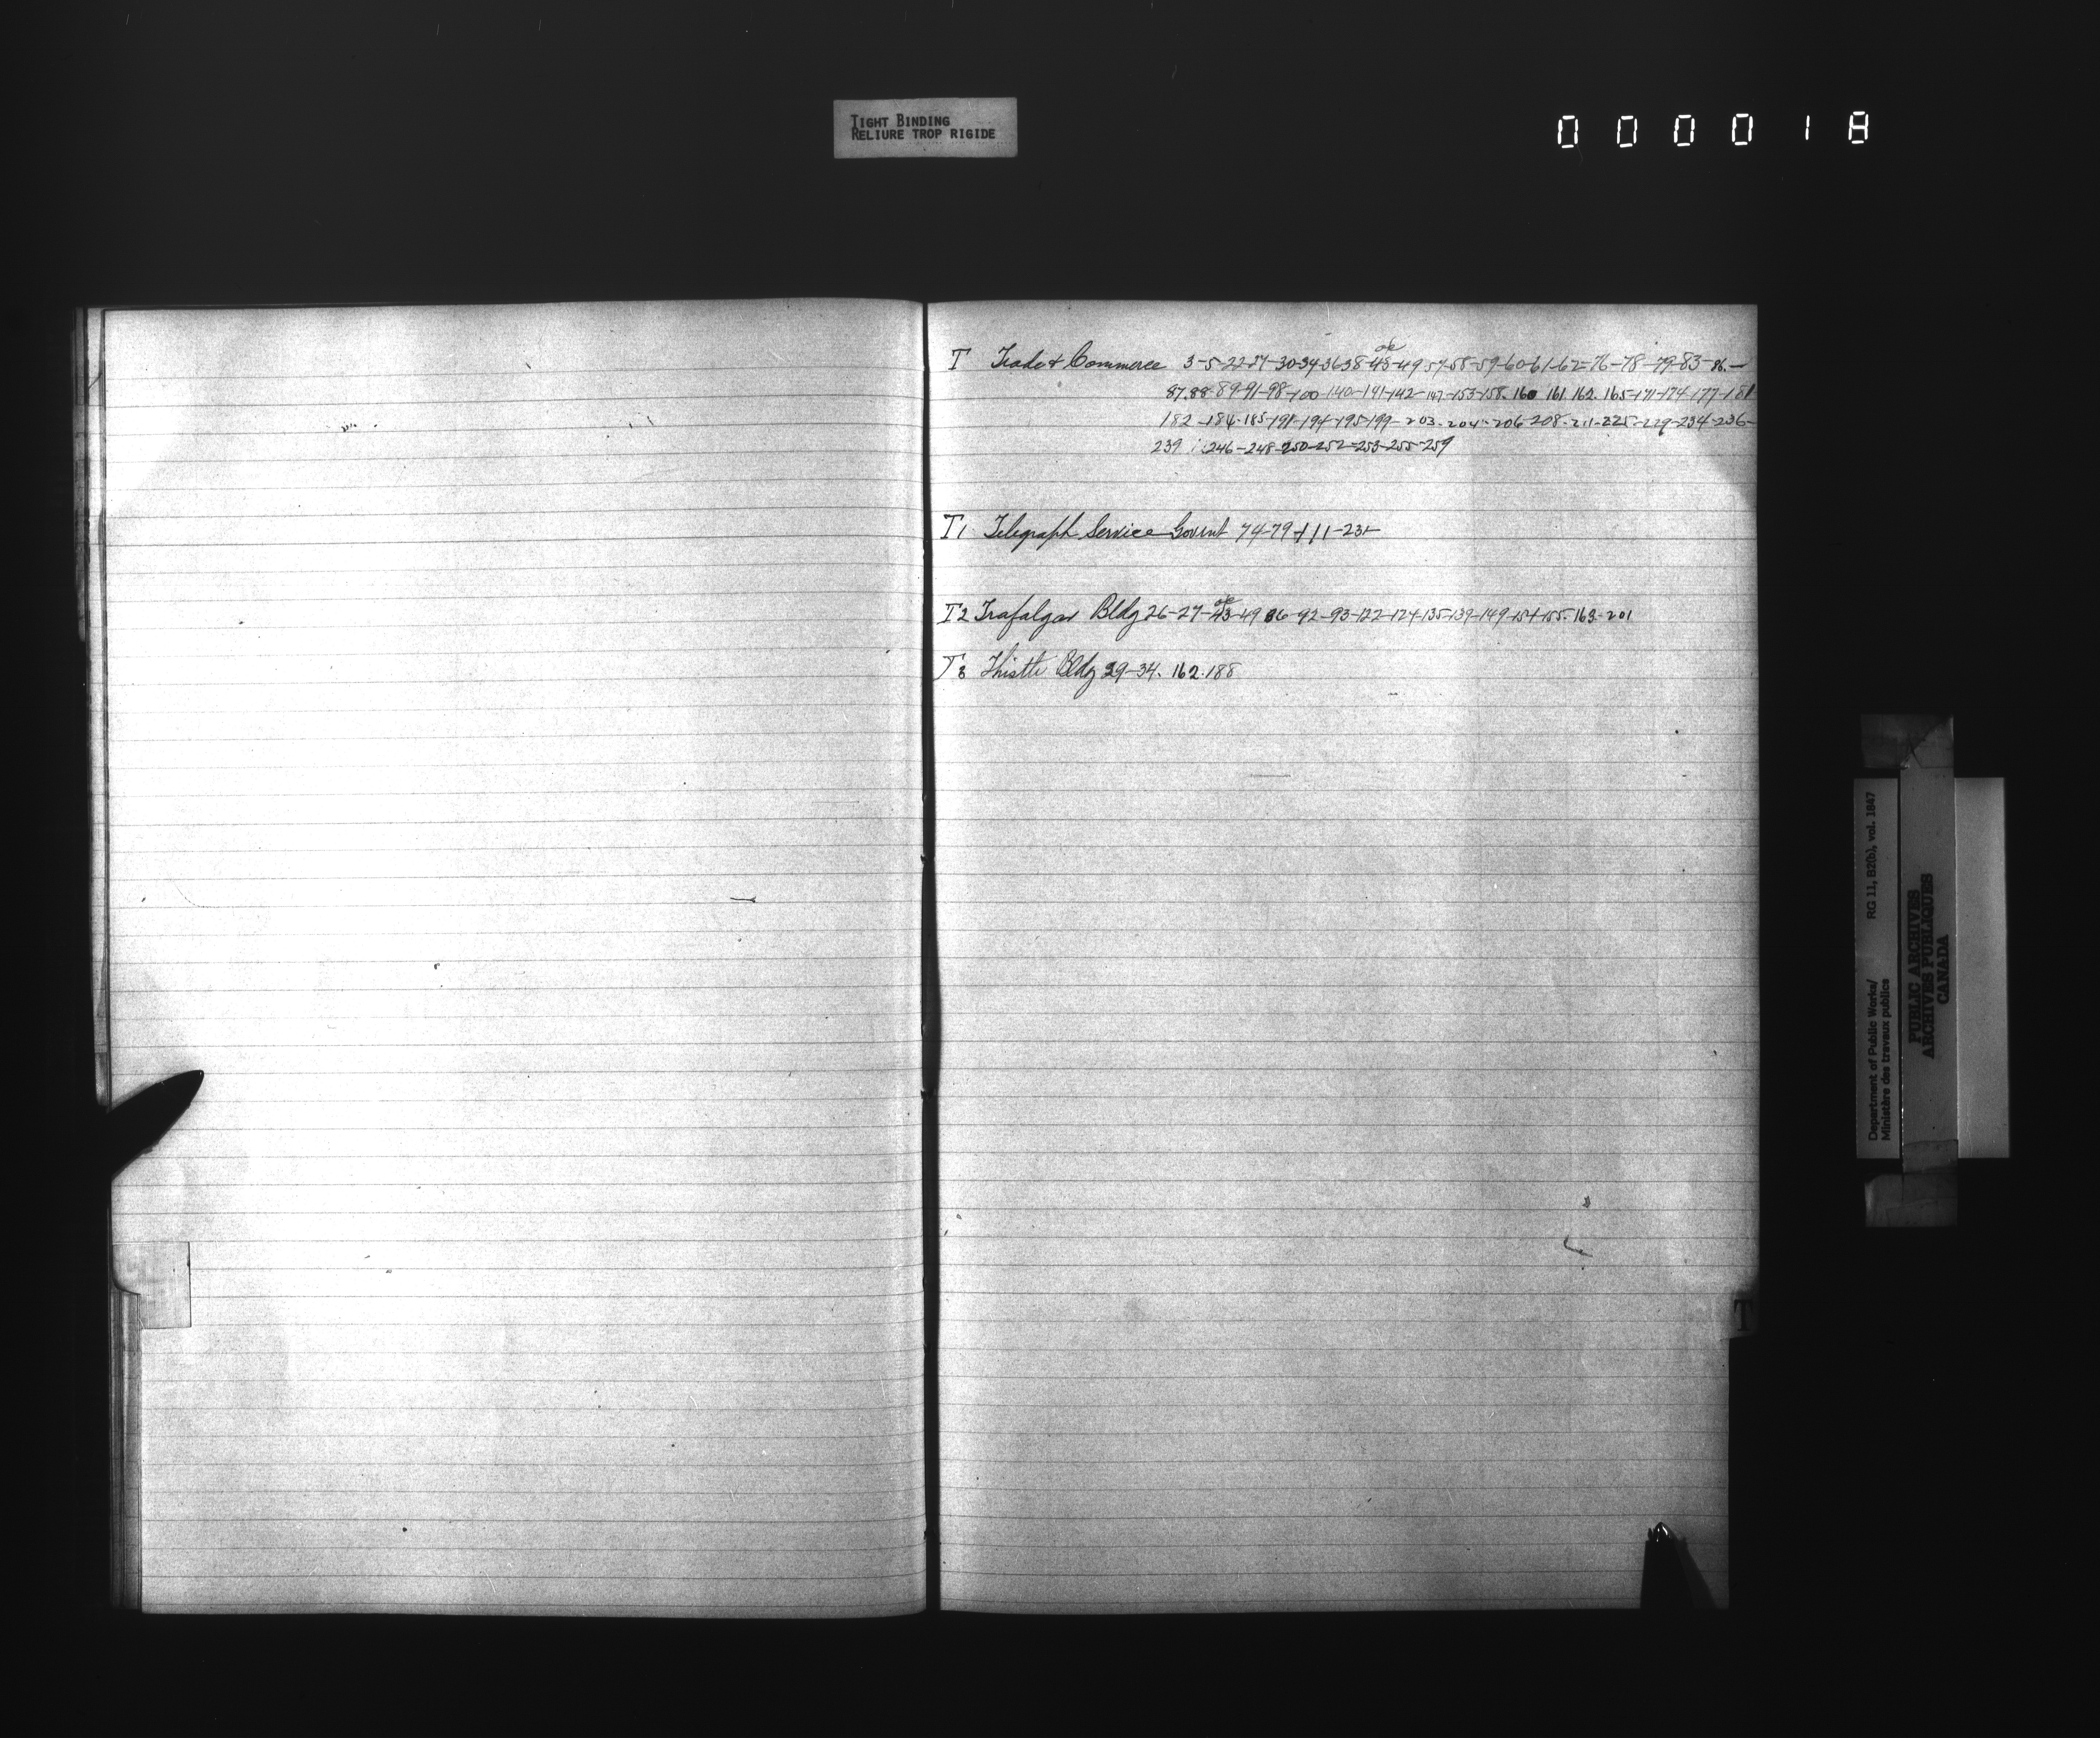 TIGHT BINDING
RELIURE TROP RIGIDE
0 0 0 0 1 8
T Trade & Commerce 3-5-22-27-30-34-36-38-43-49-57-58-59-60-61-62-76-78-79-83-86-
87.88-89-91-98-100-140-141-142-147-153-158.160 161.162.165-171-174-177-181
182-184-185-191-194-195-199-203-204-206-208-211-225-229-234-236-
239 246-248-250-252-253-255-259
T1 Telegraph Service Govnt 74-79-111-231
T2 Trafalgar Bldg 26-27-43-49 86-92-93-122-124-135-139-149-154-155.163-201
T3 Thistle Bldg 29-34. 162.188
T
Department of Public Works/ RG 11, B2(b), vol. 1847
Ministère des travaux publics
PUBLIC ARCHIVES
ARCHIVES PUBLIQUES
CANADA